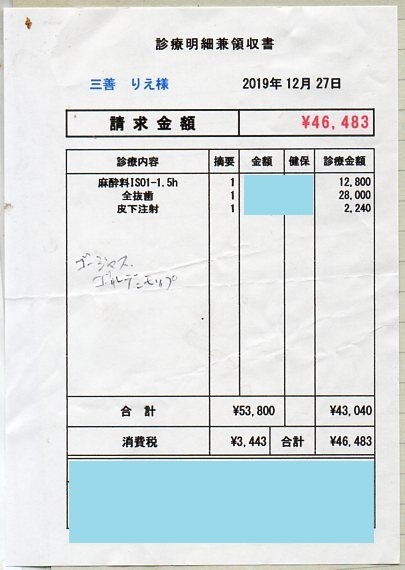 診療明細兼領収書
三善 りえ様 2019年 12月 27日
請求金額 ¥46,483
診療内容 摘要 金額 健保 診療金額
麻酔料ISO1-1.5h 1 12,800
全抜歯 1 28,000
皮下注射 1 2,240
ゴージャス、
ゴールデンモップ
合 計 ¥53,800 ¥43,040
消費税 ¥3,443 合計 ¥46,483